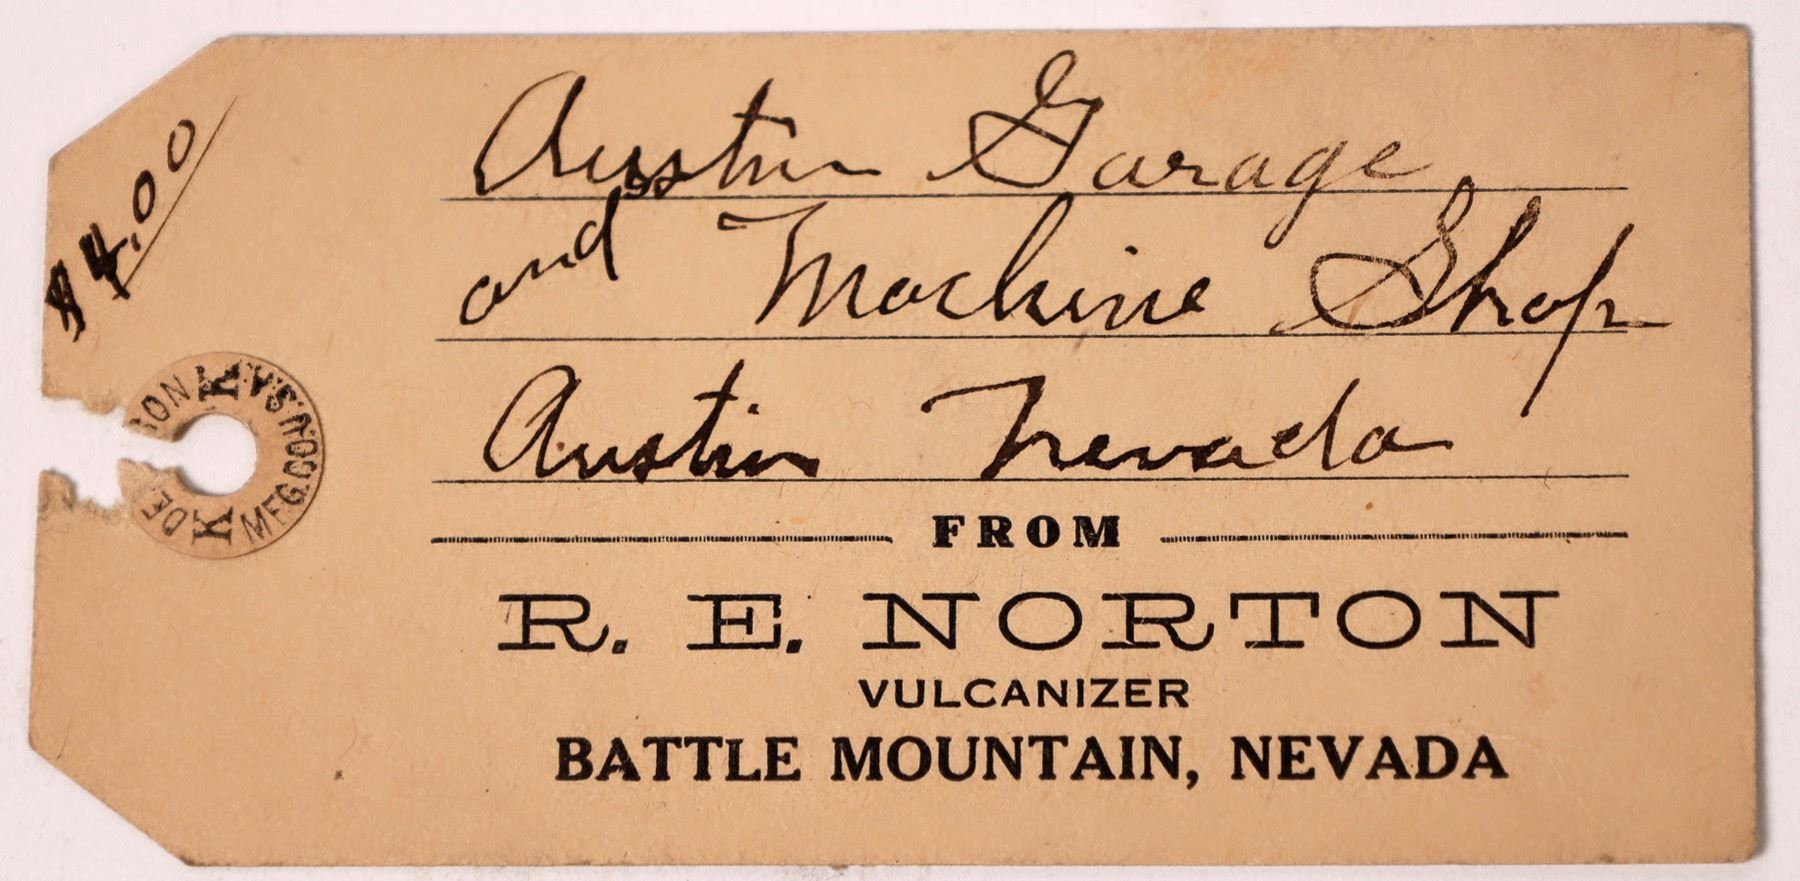 $4.00
Austin Garage
and Machine Shop
Austin Nevada
FROM
R. E. NORTON
VULCANIZER
BATTLE MOUNTAIN, NEVADA
K MFG.CO. U.S.A. K